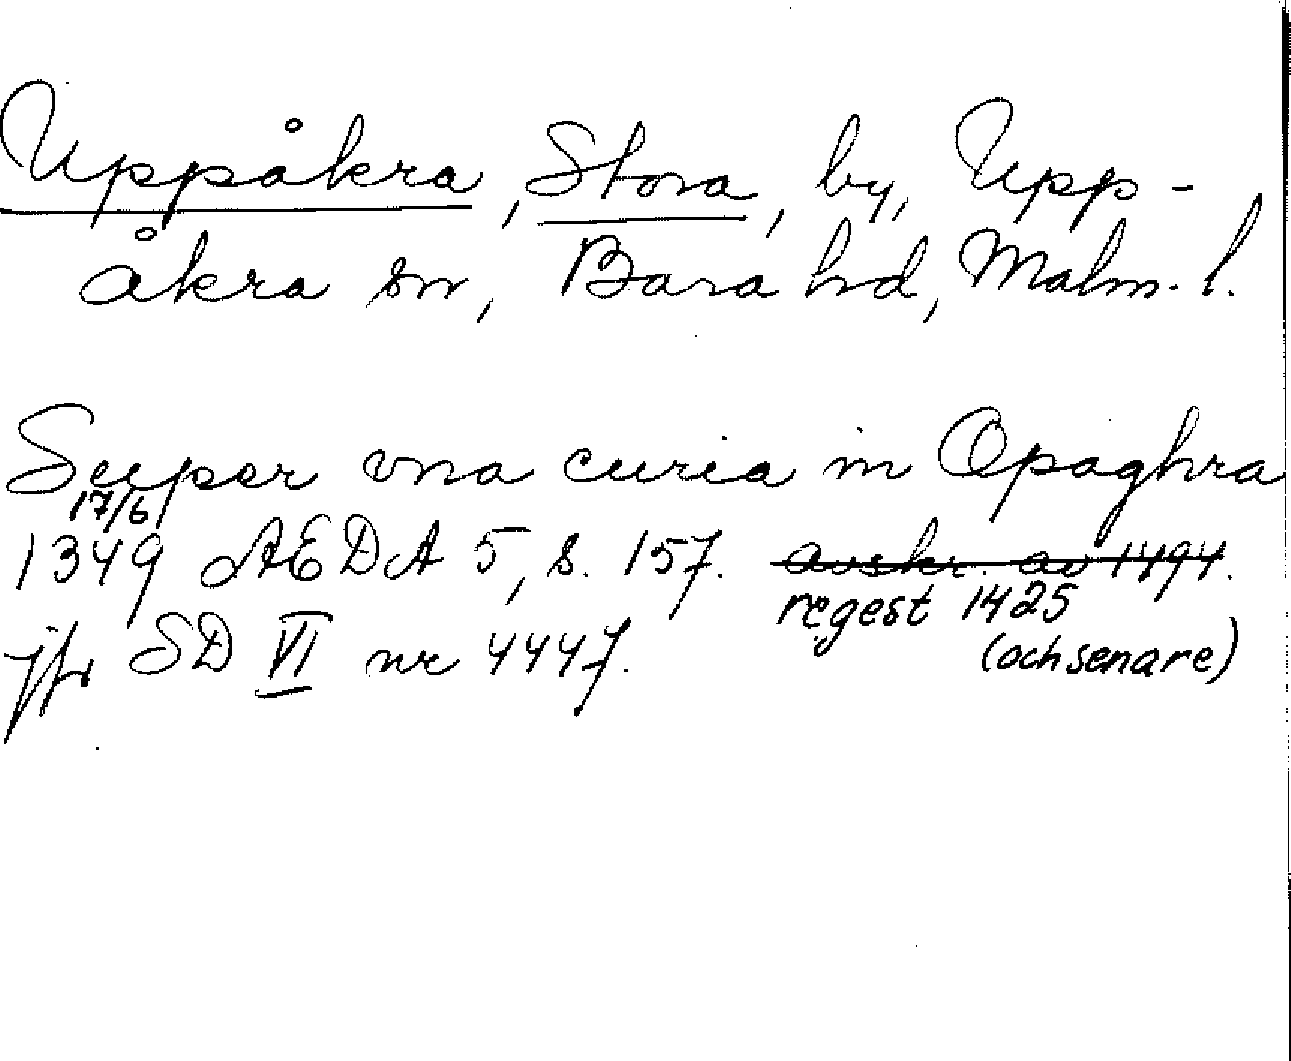 Uppåkra, Stora, by, Upp-
åkra sn, Bara hd, Malm. l.
Super vna curia in Opaghra
17/6
1349 AEDA 5, s. 157. avskr. av 1494.
regest 1425
jfr SD VI nr 4447. (och senare)